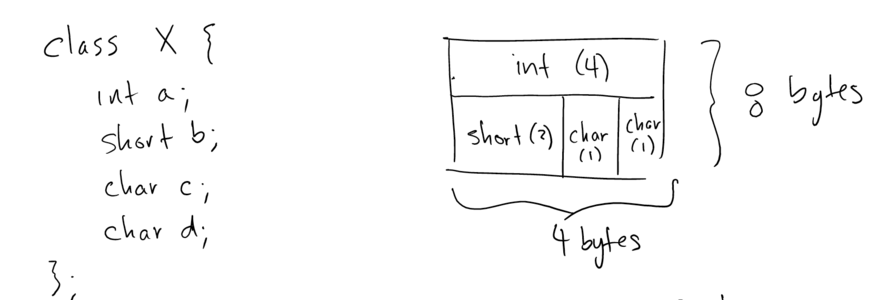 class X {
int a;
short b;
char c;
char d;
};
int (4)
short (2) char (1) char (1)
8 bytes
4 bytes